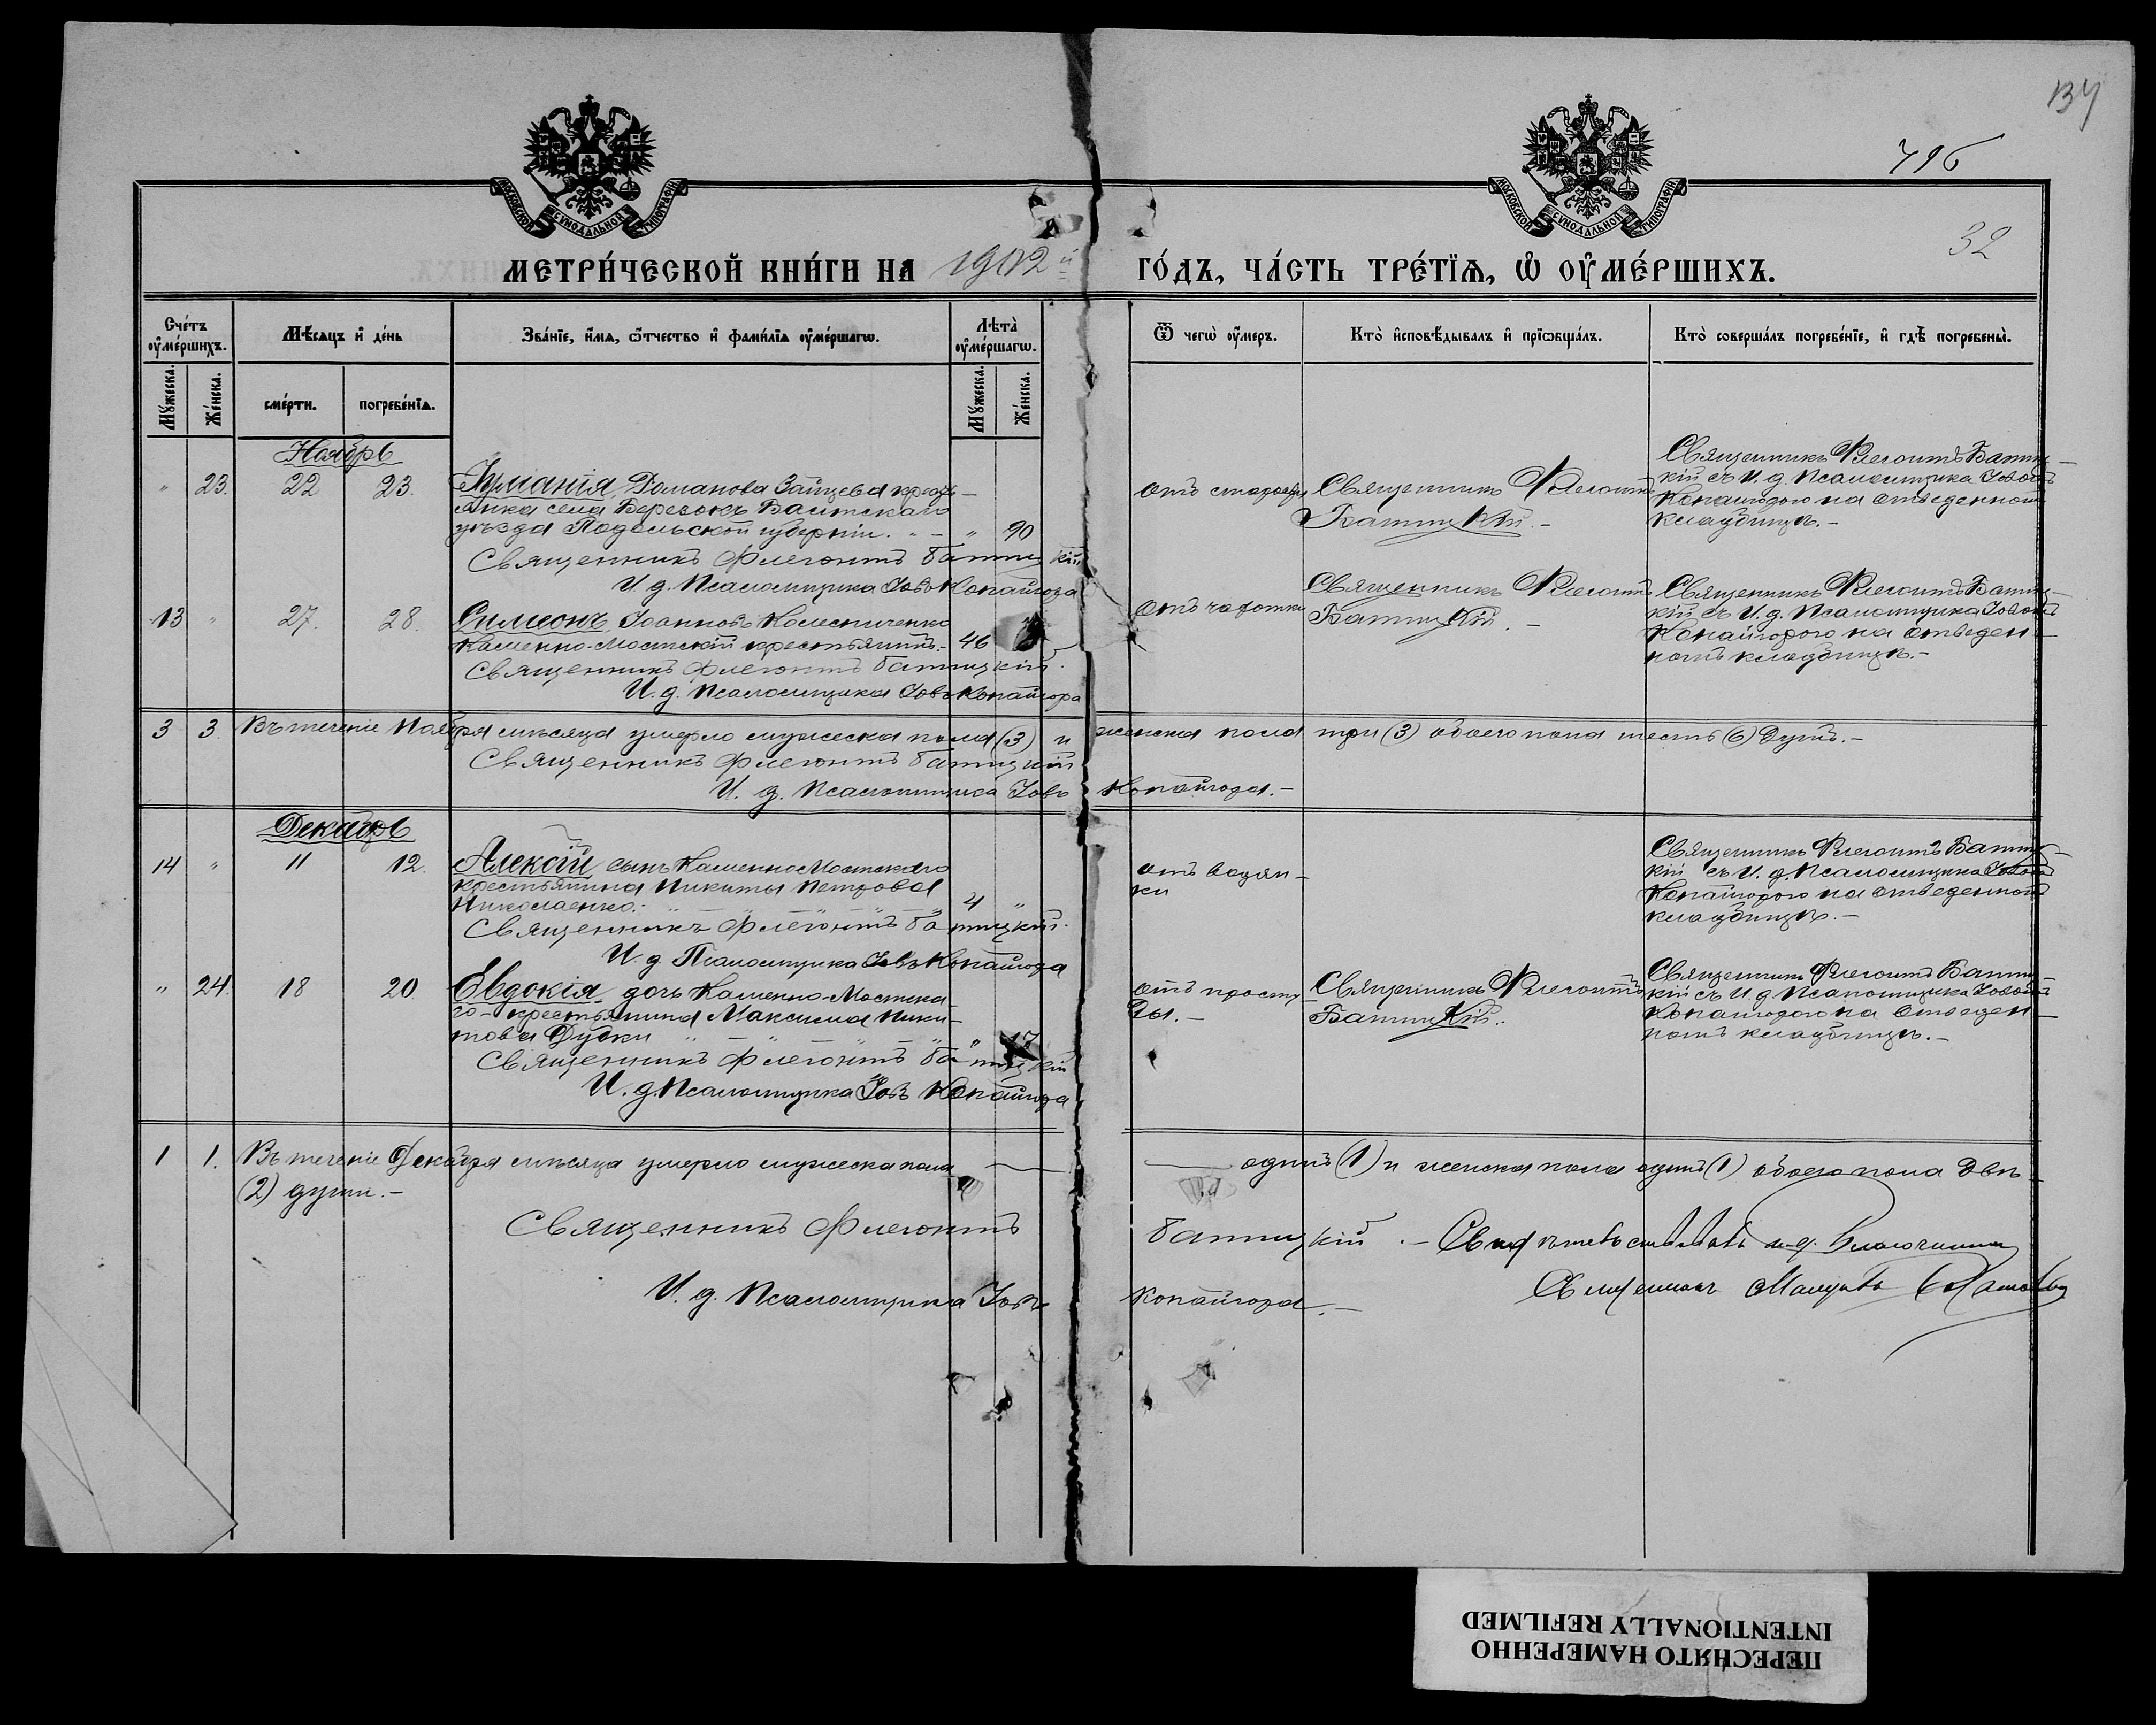 134
796
32
МОСКОВСКОЙ СѴНОДАЛЬНОЙ ТИПОГРАФІИ
МОСКОВСКОЙ СѴНОДАЛЬНОЙ ТИПОГРАФІИ
МЕТРИ́ЧЕСКОЙ КНИ́ГИ НА 1902й ГО́ДЪ, ЧА́СТЬ ТРЕ́ТЇѦ, Ѡ҆ ОУ҆МЕ́РШИХЪ.
Сче́тъ оу҆ме́ршихъ.
Мѣ́сяцъ и҆ де́нь
Зва́нїе, и҆́мѧ, ѻ҆́тчество и҆ фами́лїѧ оу҆ме́ршагѡ.
Лѣта̀ оу҆ме́ршагѡ.
Ѿ чегѡ̀ оу҆́меръ.
Кто̀ и҆сповѣ́дывалъ и҆ прїѡбща́лъ.
Кто̀ соверша́лъ погребе́нїе, и҆ гдѣ̀ погребены̀.
Мꙋ́жеска.
Же́нска.
сме́рти.
погребе́нїѧ.
Мꙋ́жеска.
Же́нска.
Ноябрь
" 23. 22 23.
Романова Зайцева кресть-
янка села Березокъ Балтскаго
уѣзда Подольской губерніи. " 90
Священникъ Флегонтъ Батицкій
И. д. Псаломщика Іовъ Копайгора
отъ старости
Священникъ Флегонтъ
Батицкій. -
Священникъ Флегонтъ Батиц-
кій съ И. д. Псаломщика Іовомъ
Копайгорою на отведенномъ
кладбищѣ. -
13 " 27. 28.
Симеонъ Іоанновъ Колесниченко
Каменно-Мостскій крестьянинъ. - 46
Священникъ Флегонтъ Батицкій.
И. д. Псаломщика Іовъ Копайгора
отъ чахотки
Священникъ Флегонтъ
Батицкій. -
Священникъ Флегонтъ Батиц-
кій съ И. д. Псаломщика Іовомъ
Копайгорою на отведен-
номъ кладбищѣ. -
3 3 Въ теченіе Ноября мѣсяца умерло мужеска пола (3) и женска пола три (3) обоего пола шесть (6) душъ. -
Священникъ Флегонтъ Батицкій
И. д. Псаломщика Іовъ Копайгора. -
Декабрь
14 " 11 12.
Алексій сынъ Каменно-Мостскаго
крестьянина Никиты Петрова
Николаенко. - " 4 "
Священникъ Флегонтъ Батицкій.
И. д. Псаломщика Іовъ Копайгора
отъ водян-
ки
Священникъ Флегонтъ Батиц-
кій съ И. д. Псаломщика Іовомъ
Копайгорою на отведенномъ
кладбищѣ. -
" 24. 18 20
Евдокія дочь Каменно-Мостска-
го крестьянина Максима Ники-
това Дубки " 17
Священникъ Флегонтъ Батицкій
И. д. Псаломщика Іовъ Копайгора
отъ просту
ды. -
Священникъ Флегонтъ
Батицкій.
Священникъ Флегонтъ Батиц-
кій съ И. д. Псаломщика Іовомъ
Копайгорою на отведен-
номъ кладбищѣ. -
1 1. Въ теченіе Декабря мѣсяца умерло мужеска пола одинъ (1) и женска пола одинъ (1) обоего пола двѣ
(2) души. -
Священникъ Флегонтъ Батицкій. -
И. д. Псаломщика Іовъ Копайгора. -
Свидѣтельствовалъ и. д. Благочиннаго
Священникъ
ПЕРЕСНЯТО НАМЕРЕННО
INTENTIONALLY REFILMED